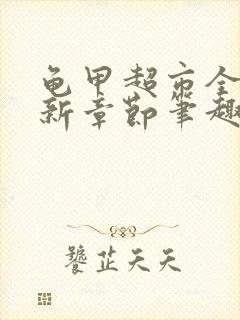 龟甲超市全
新章节笔趣
饕芷天天